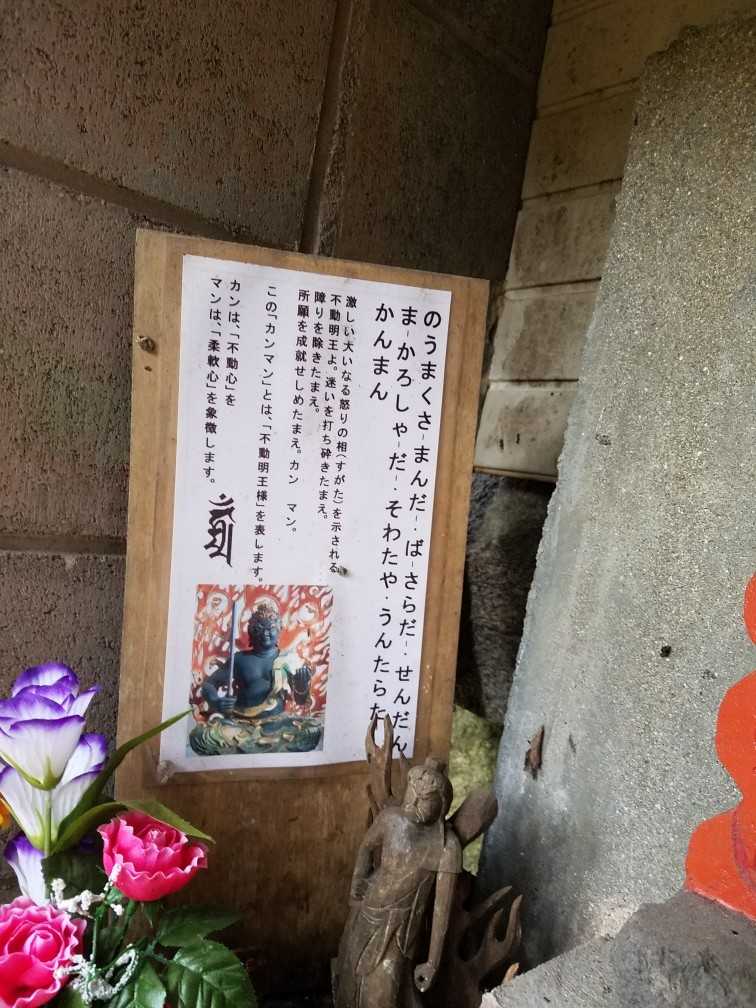 のうまくさーまんだー・ばーさらだー・せんだん
まーかろしゃーだー・そわたや・うんたらた
かんまん
激しい大いなる怒りの相(すがた)を示される
不動明王よ。迷いを打ち砕きたまえ。
障りを除きたまえ。
所願を成就せしめたまえ。カン マン。
この「カンマン」とは、「不動明王様」を表します。
カンは、「不動心」を
マンは、「柔軟心」を象徴します。